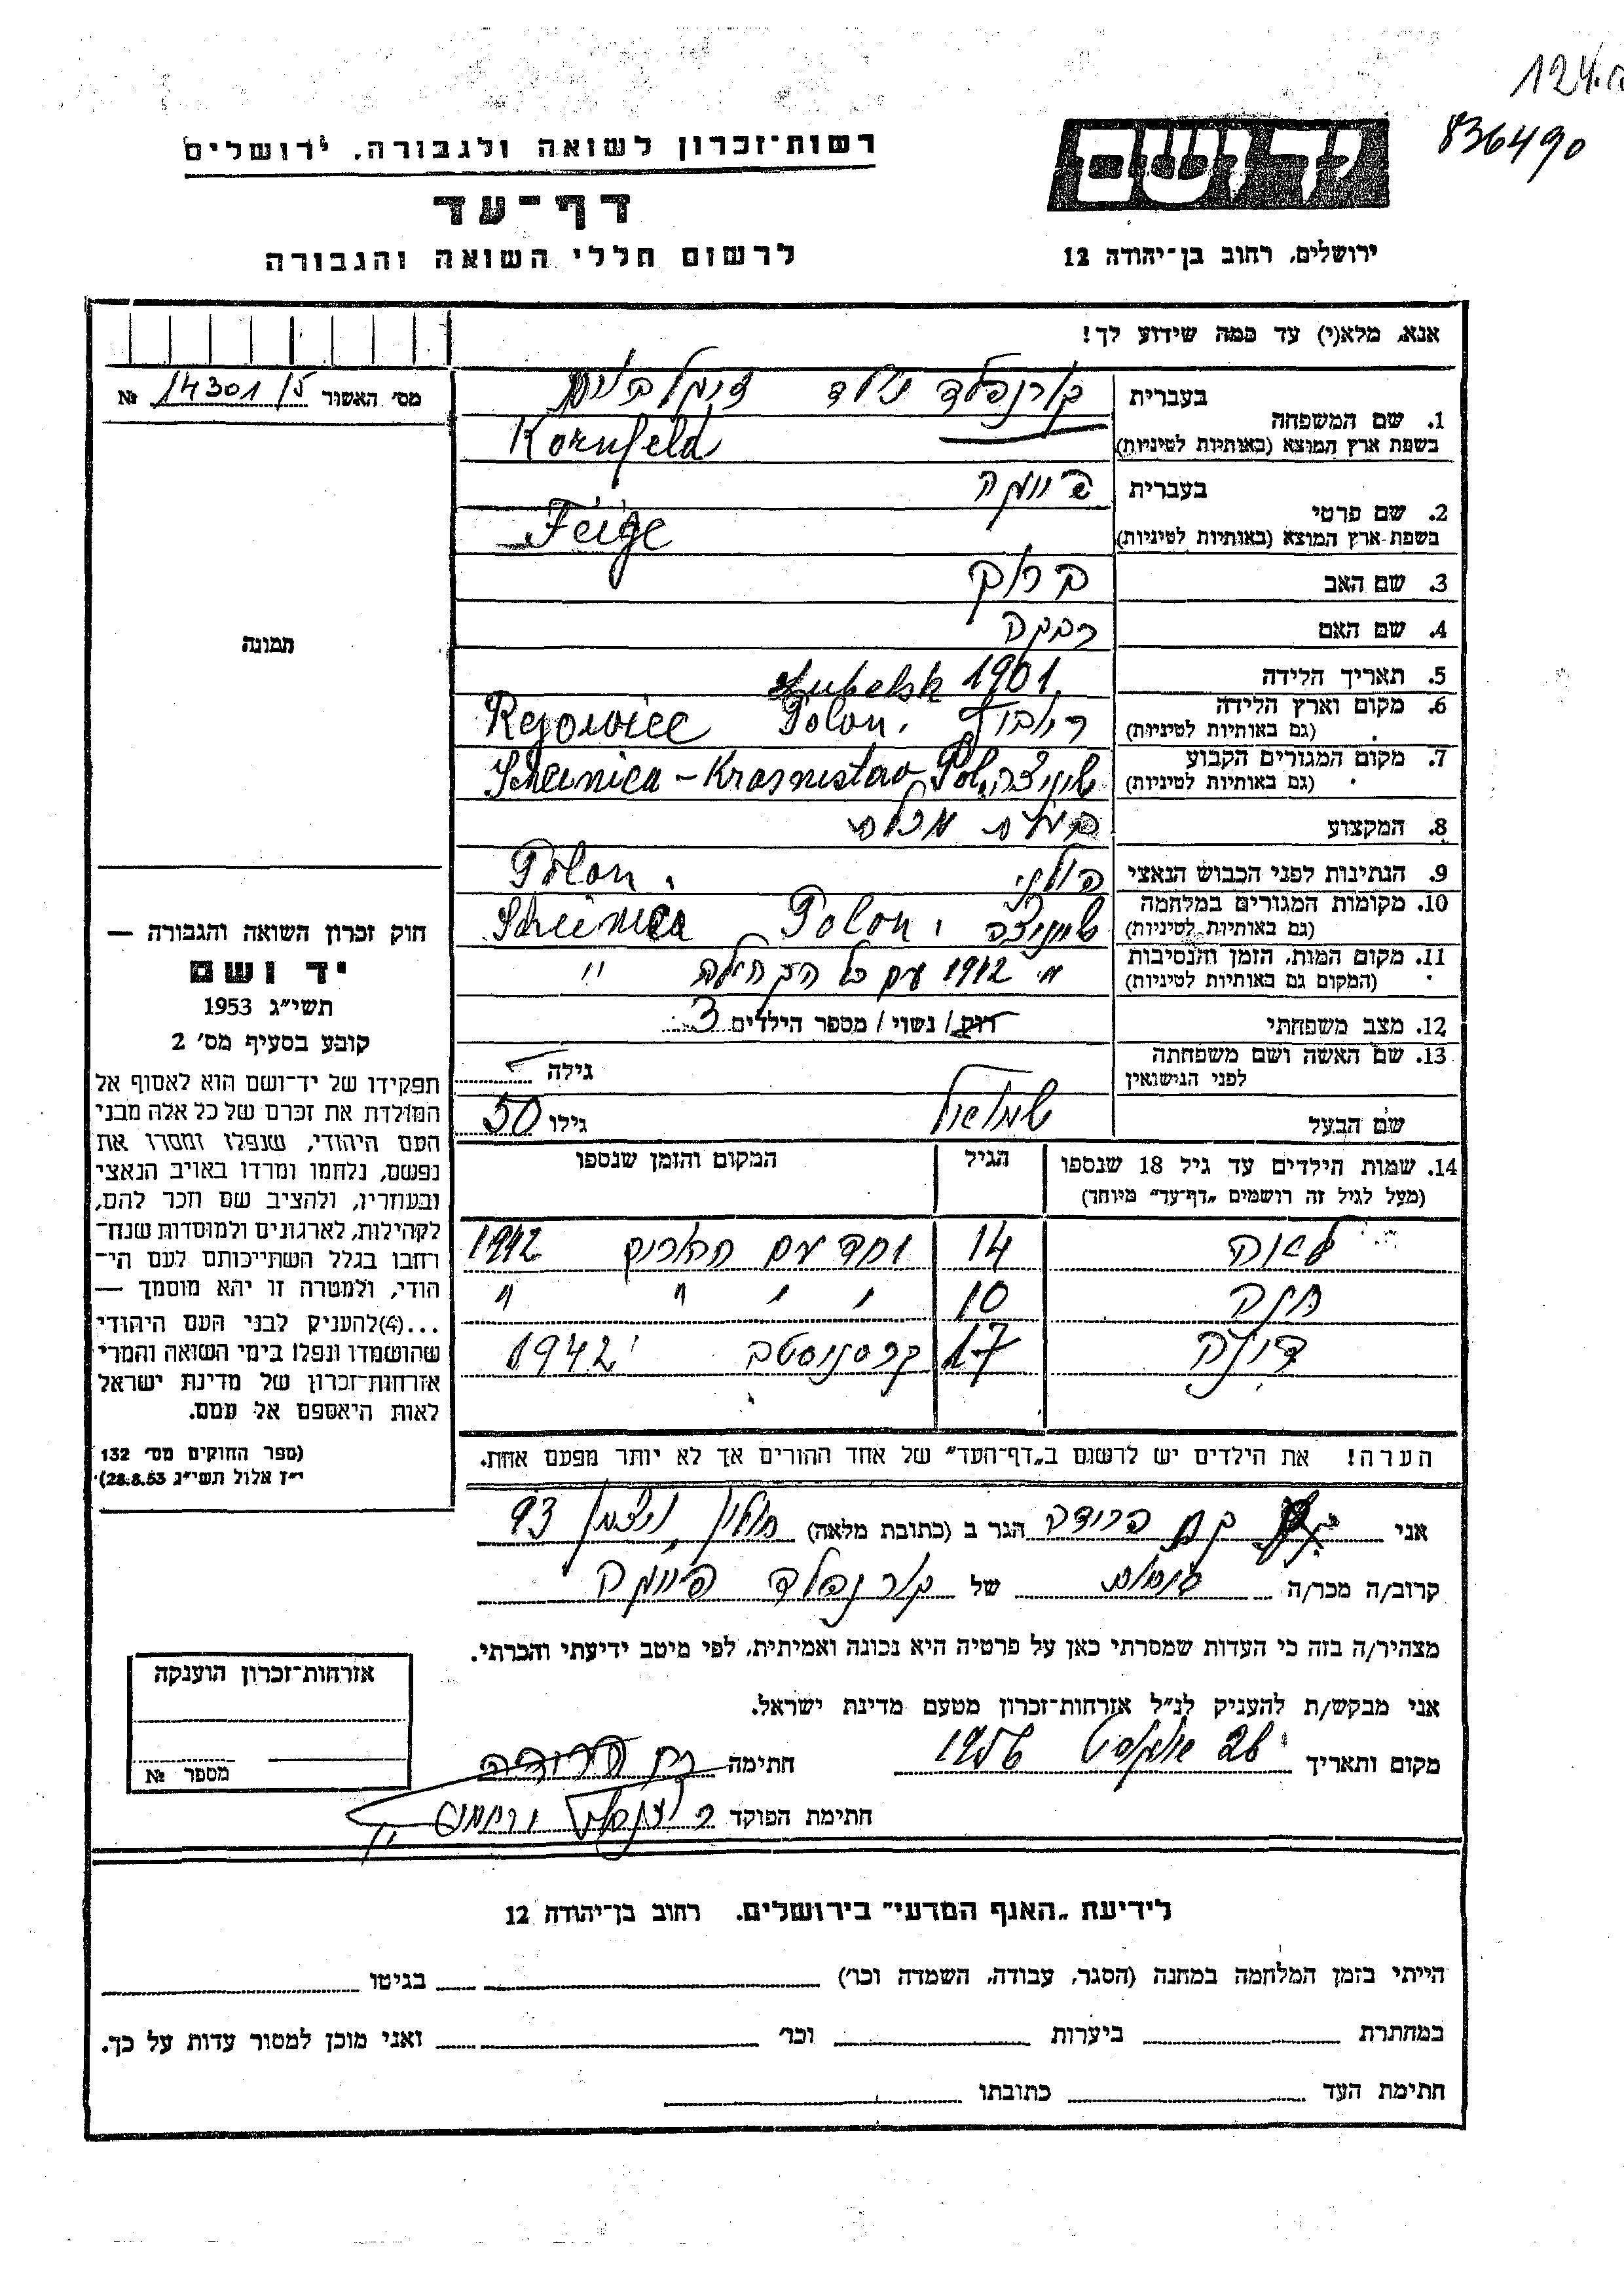 124.
836490
יד ושם
ירושלים, רחוב בן־יהודה 12
רשות־זכרון לשואה ולגבורה, ירושלים
דף־עד
לרשום חללי השואה והגבורה
אנא, מלא(י) עד כמה שידוע לך!
מס׳ האשור 14301/5 №
1. שם המשפחה
בעברית קורנפלד
בשפת ארץ המוצא (באותיות לטיניות) Kornfeld
2. שם פרטי
בעברית פיגה
בשפת ארץ המוצא (באותיות לטיניות) Feige
3. שם האב ברוך
4. שם האם רבקה
5. תאריך הלידה 1901
Lubelsk
6. מקום וארץ הלידה
(גם באותיות לטיניות) Polon. Rejowiec
7. מקום המגורים הקבוע
(גם באותיות לטיניות) Pol. Scheinica - Krasnistav
8. המקצוע בעלת מכולת
9. הנתינות לפני הכבוש הנאצי פולני Polon.
10. מקומות המגורים במלחמה
(גם באותיות לטיניות) שיניצה Polon. Scheinica
11. מקום המות, הזמן והנסיבות
(המקום גם באותיות לטיניות) 1942 עם כל הקהילה "
12. מצב משפחתי רוק/ נשוי/ מספר הילדים 3
13. שם האשה ושם משפחתה
לפני הנישואין גילה
שם הבעל שמואל גילו 50
14. שמות הילדים עד גיל 18 שנספו הגיל המקום והזמן שנספו
(מעל לגיל זה רושמים „דף־עד״ מיוחד)
לאה 14 יחד עם ההורים 1942
חנה 10 " " " "
דינה 17 קרסניסטב 1942
הערה! את הילדים יש לרשום ב„דף־העד״ של אחד ההורים אך לא יותר מפעם אחת.
אני כץ פרידה הגר ב (כתובת מלאה) חולון, ויצמן 93
קרוב/ה מכר/ה של קורנפלד פיגה
מצהיר/ה בזה כי העדות שמסרתי כאן על פרטיה היא נכונה ואמיתית, לפי מיטב ידיעתי והכרתי.
אני מבקש/ת להעניק לנ״ל אזרחות־זכרון מטעם מדינת ישראל.
מקום ותאריך 26 אוגוסט 1956 חתימה כץ פרידה
חתימת הפוקד
תמונה
חוק זכרון השואה והגבורה —
יד ושם
תשי״ג 1953
קובע בסעיף מס׳ 2
תפקידו של יד־ושם הוא לאסוף אל
המולדת את זכרם של כל אלה מבני
העם היהודי, שנפלו ומסרו את
נפשם, נלחמו ומרדו באויב הנאצי
ובעוזריו, ולהציב שם וזכר להם,
לקהילות, לארגונים ולמוסדות שנח־
רבו בגלל השתייכותם לעם הי־
הודי, ולמטרה זו יהא מוסמך —
...(4)להעניק לבני העם היהודי
שהושמדו ונפלו בימי השואה והמרי
אזרחות־זכרון של מדינת ישראל
לאות היאספם אל עמם.
(ספר החוקים מס׳ 132
י״ז אלול תשי״ג 28.8.53)
אזרחות־זכרון הוענקה
מספר №
לידיעת „האגף המדעי״ בירושלים. רחוב בן־יהודה 12
הייתי בזמן המלחמה במחנה (הסגר, עבודה, השמדה וכו׳) בגיטו
במחתרת ביערות וכו׳ ואני מוכן למסור עדות על כך.
חתימת העד כתובתו